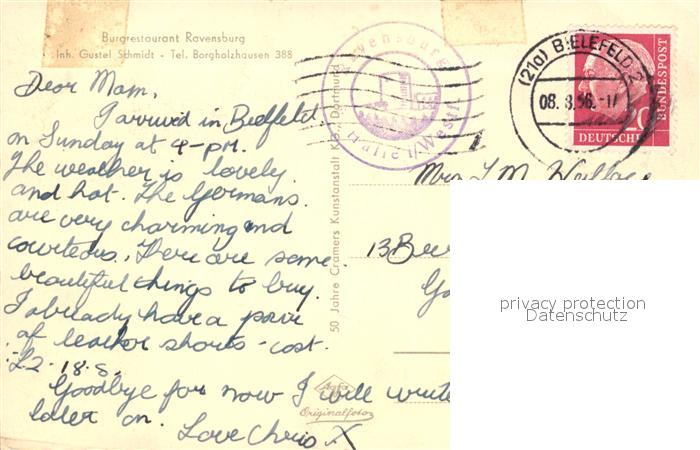 Burgrestaurant Ravensburg
Inh. Gustel Schmidt - Tel. Borgholzhausen 388
Dear Mom,
I arrived in Bielfeld
on Sunday at 9-pm.
The weather is lovely
and hot. The Germans
are very charming and
courteous. There are some
beautiful things to buy.
I already have a pair
of leather shorts - cost.
£2-18.s.
Goodbye for now I will write
later on.
Love Chris X
50 Jahre Cramers Kunstanstalt KG, Dortmund
Ravensburg
i/Westf
(21a) BIELEFELD 2
08.8.56.-17
20
DEUTSCHE
BUNDESPOST
Mrs L.M.
13
Agfa
Originalfoto
privacy protection
Datenschutz